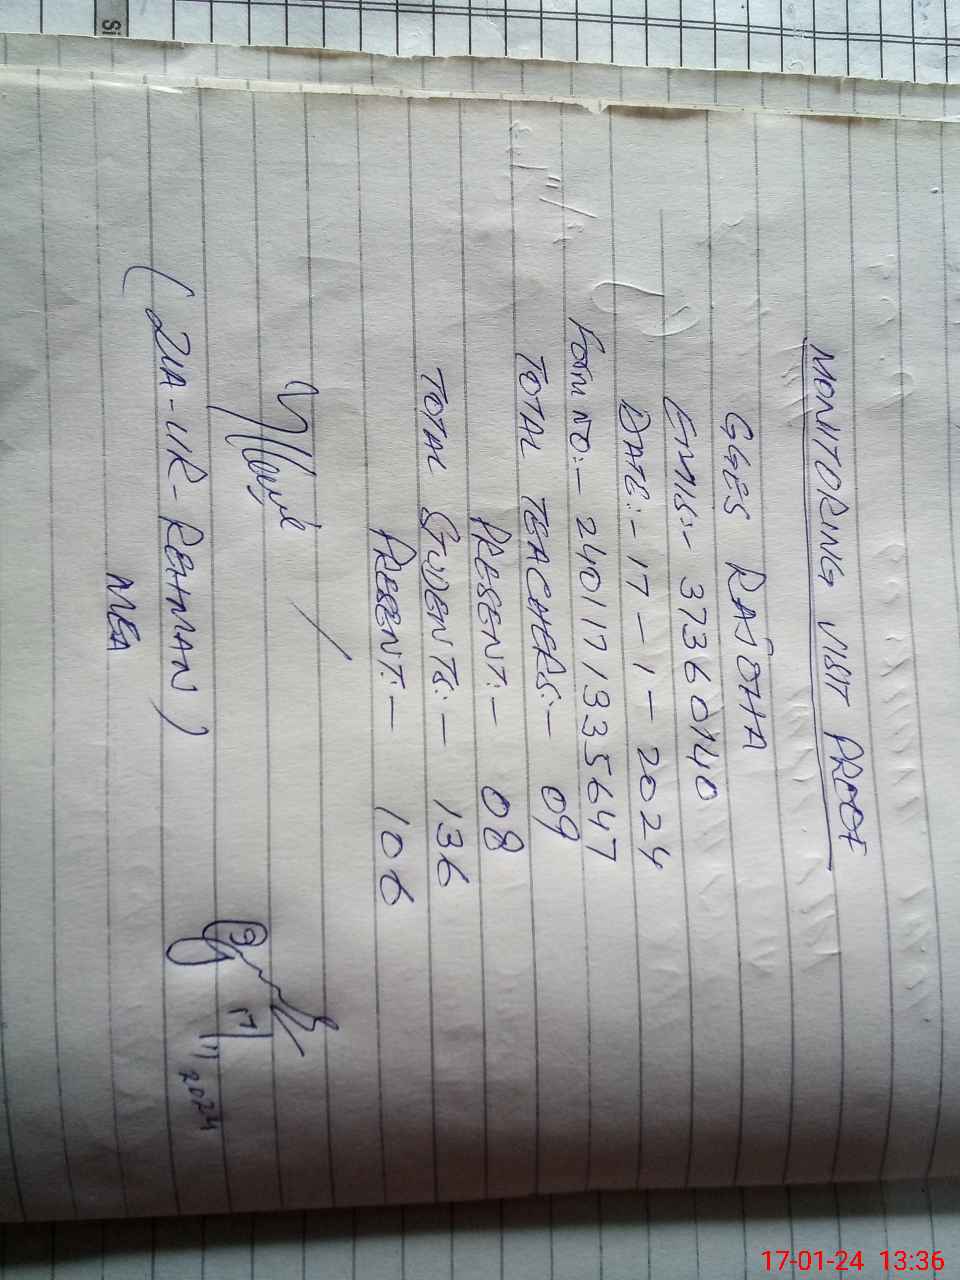 MONITORING VISIT PROOF
GGES RAJOHA
EMIS:- 37360140
DATE:- 17-1-2024
FORM NO:- 2401171935647
TOTAL TEACHERS:- 09
PRESENT:- 08
TOTAL STUDENTS:- 136
PRESENT:- 106
(ZIA-UR-REHMAN)
MEA
17/1/2024
17-01-24 13:36